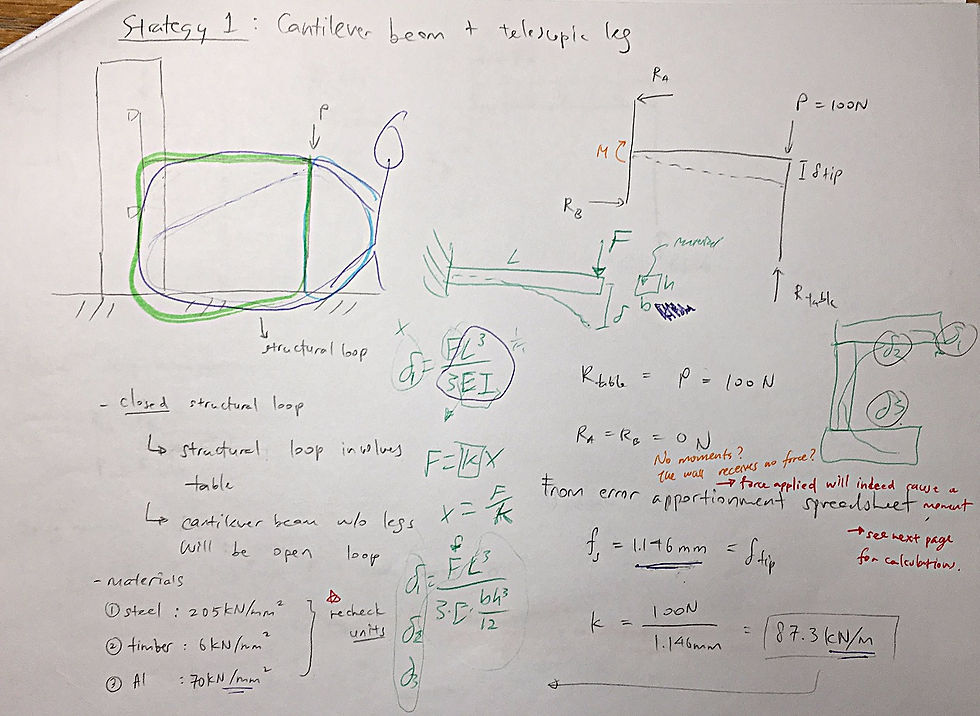 Strategy 1 : Cantilever beam + telescopic leg
P
D
D
structural loop
R_A
P = 100N
M
δtip
R_B
R table
L
F
material
h
b
δ
x
δ₁ = FL³ / 3EI
F = k x
x = F/k
δ₁ = FL³ / 3·E· bh³/12
δ₂
δ₃
- closed structural loop
↳ structural loop involves
table
↳ cantilever beam w/o legs
will be open loop
- materials
① steel : 205 kN/mm²
② timber : 6 kN/mm²
③ Al : 70 kN/mm²
recheck
units
R table = P = 100 N
R_A = R_B = 0 N
No moments?
The wall receives no force?
→ force applied will indeed cause a
moment
From error apportionment spreadsheet
→ see next page
for calculation.
f_s = 1.146mm = δtip
k = 100N / 1.146mm = 87.3 kN/m
δ₂
δ₁
δ₃